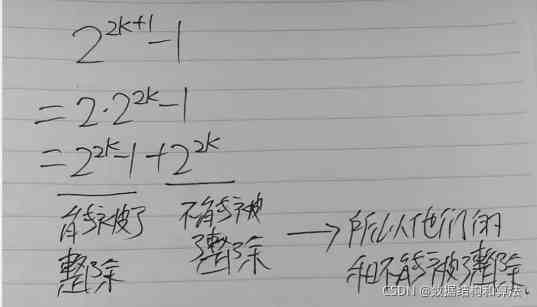 2^{2k+1}-1
=2·2^{2k}-1
=2^{2k}-1+2^{2k}
能被3
整除
不能被
3整除
→所以他们的
和不能被3整除.
CSDN @数据结构和算法